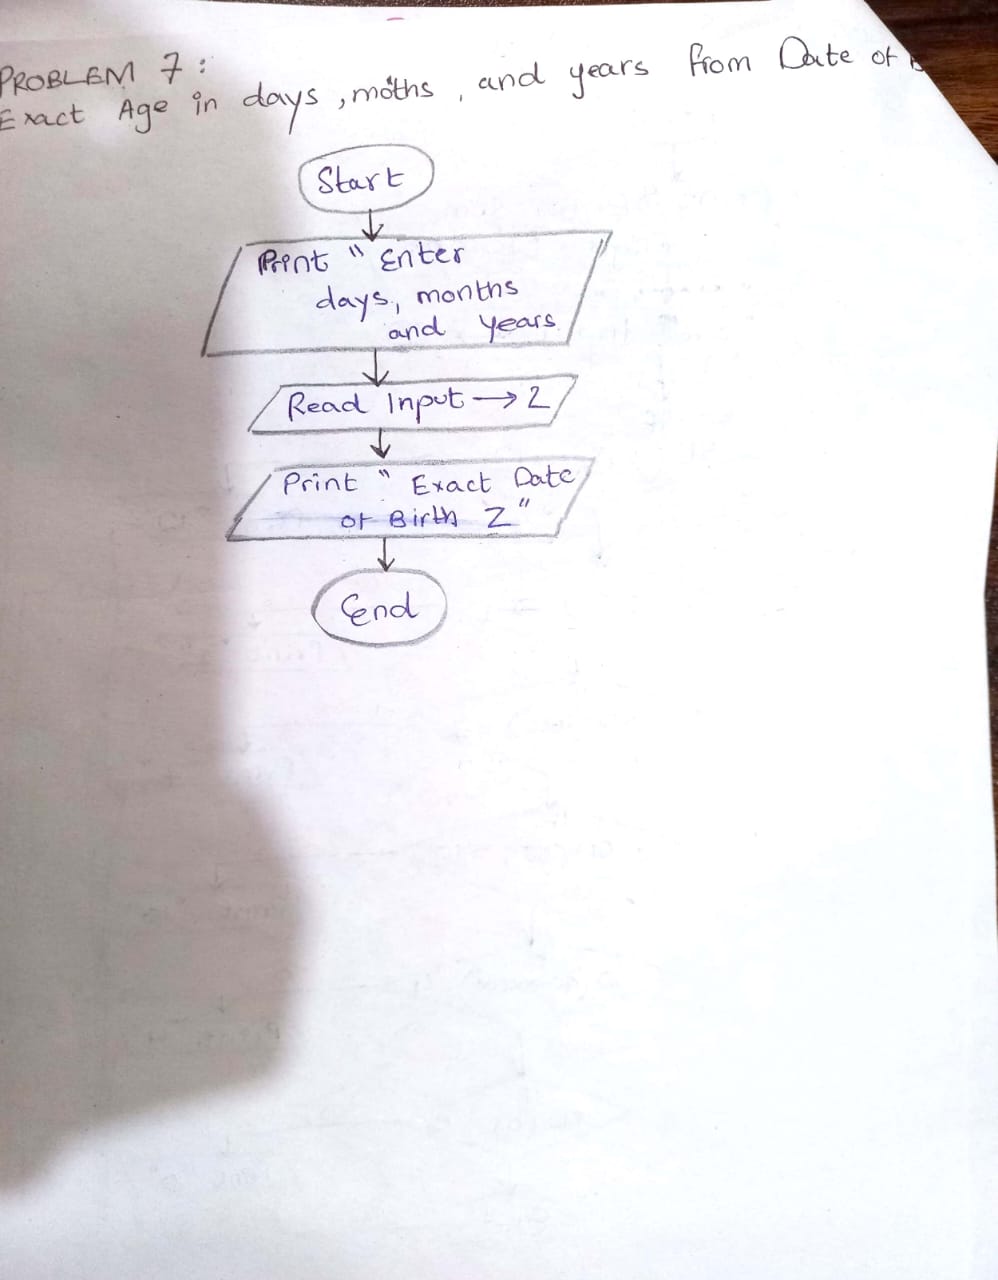 PROBLEM 7:
Exact Age in days, moths, and years from Date of
Start
Print " Enter
days, months
and years
Read Input → 2
Print " Exact Date
of Birth Z"
End